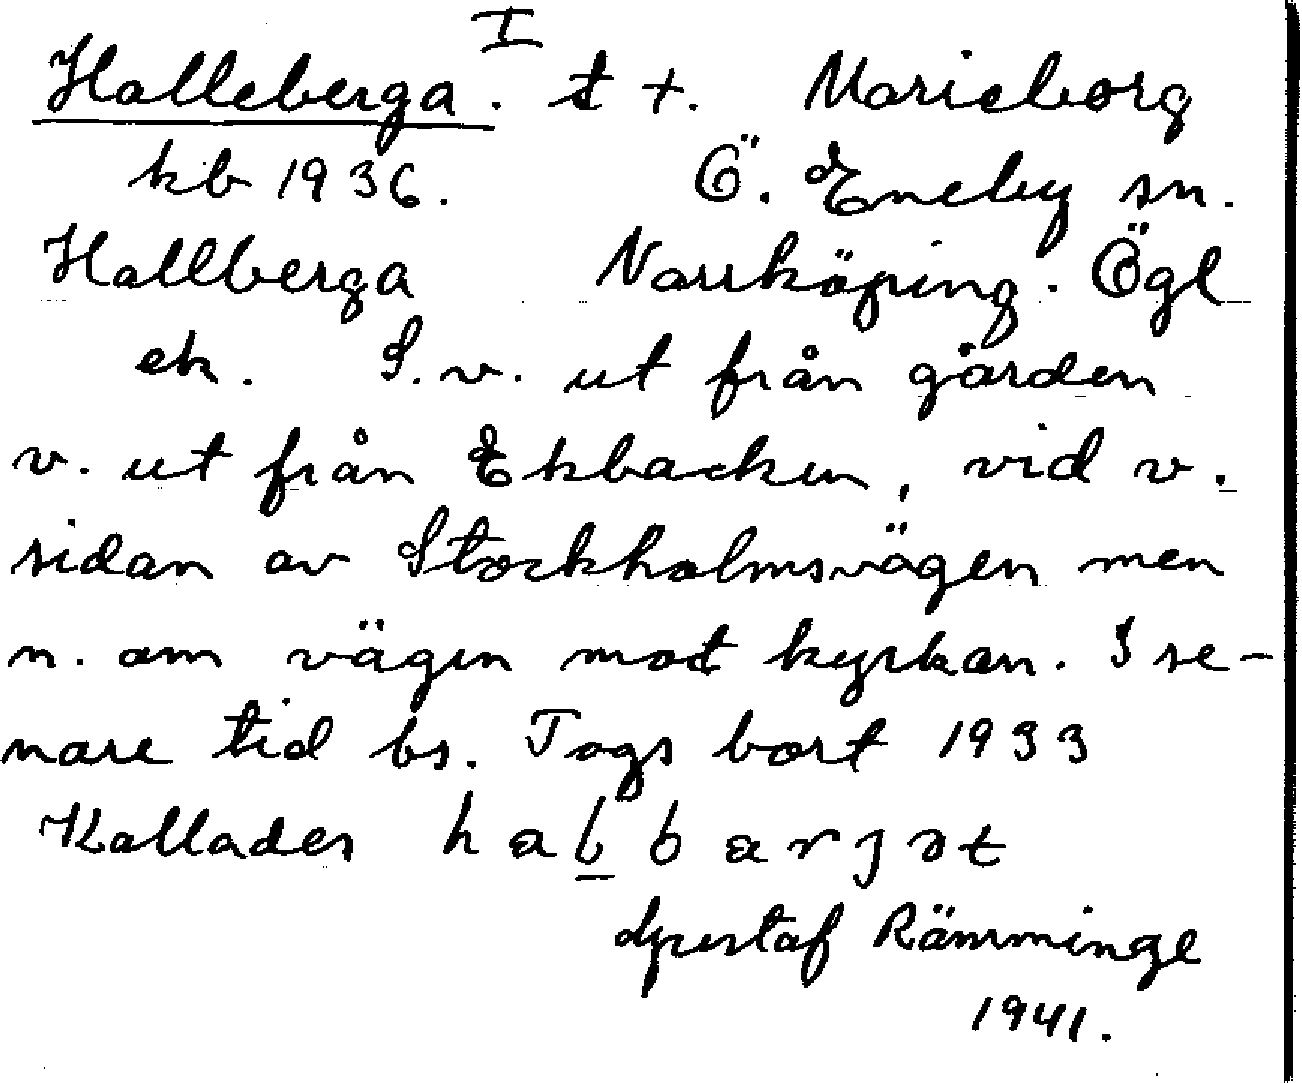 I
Halleberga. t +. Marieborg
kb 1936. Ö. Eneby sn.
Hallberga Norrköping. Ögl
ek. S.v. ut från gården
v. ut från Ekbacken, vid v.
sidan av Stockholmsvägen men
n. om vägen mot kyrkan. I se-
nare tid bs. Togs bort 1933
Kallades
Gustaf Rämminge
1941.